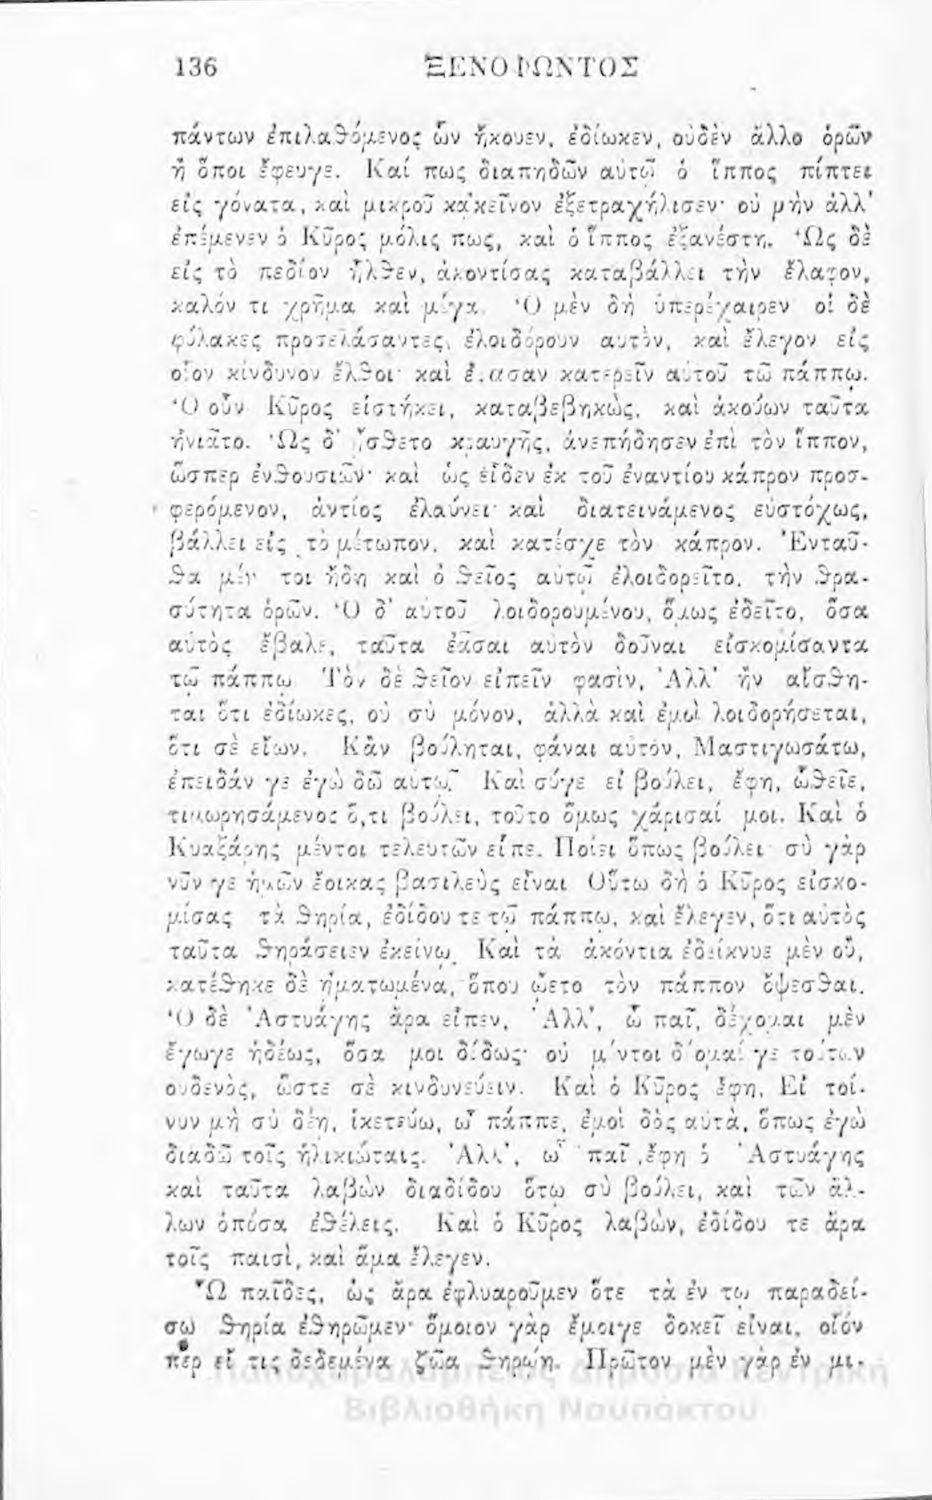 136 ΞΕΝΟΦΩΝΤΟΣ
πάντων ἐπιλαθόμενος ὧν ἤκουεν, ἐδίωκεν, οὐδὲν ἄλλο ὁρῶν
ἢ ὅποι ἔφευγε. Καί πως διαπηδῶν αὐτῷ ὁ ἵππος πίπτει
εἰς γόνατα, καὶ μικροῦ κἀκεῖνον ἐξετραχήλισεν· οὐ μὴν ἀλλ'
ἐπέμενεν ὁ Κῦρος μόλις πως, καὶ ὁ ἵππος ἐξανέστη. Ὡς δὲ
εἰς τὸ πεδίον ἦλθεν, ἀκοντίσας καταβάλλει τὴν ἔλαφον,
καλόν τι χρῆμα καὶ μέγα. Ὁ μὲν δὴ ὑπερέχαιρεν οἱ δὲ
φύλακες προσελάσαντες, ἐλοιδόρουν αὐτὸν, καὶ ἔλεγον εἰς
οἷον κίνδυνον ἔλθοι· καὶ ἔφασαν κατερεῖν αὐτοῦ τῷ πάππῳ.
Ὁ οὖν Κῦρος εἱστήκει, καταβεβηκὼς, καὶ ἀκούων ταῦτα
ἠνιᾶτο. Ὡς δ' ᾔσθετο κραυγῆς, ἀνεπήδησεν ἐπὶ τὸν ἵππον,
ὥσπερ ἐνθουσιῶν· καὶ ὡς εἶδεν ἐκ τοῦ ἐναντίου κάπρον προσ-
φερόμενον, ἀντίος ἐλαύνει· καὶ διατεινάμενος εὐστόχως,
βάλλει εἰς τὸ μέτωπον, καὶ κατέσχε τὸν κάπρον. Ἐνταῦ-
θα μέν τοι ἤδη καὶ ὁ θεῖος αὐτῷ ἐλοιδορεῖτο, τὴν θρα-
σύτητα ὁρῶν. Ὁ δ' αὐτοῦ λοιδορουμένου, ὅμως ἐδεῖτο, ὅσα
αὐτὸς ἔβαλε, ταῦτα ἐᾶσαι αὐτὸν δοῦναι εἰσκομίσαντα
τῷ πάππῳ Τὸν δὲ θεῖον εἰπεῖν φασὶν, Ἀλλ' ἢν αἴσθη-
ται ὅτι ἐδίωκες, οὐ σὺ μόνον, ἀλλὰ καὶ ἐμοὶ λοιδορήσεται,
ὅτι σὲ εἴων. Κἂν βούληται, φάναι αὐτὸν, Μαστιγωσάτω,
ἐπειδάν γε ἐγὼ δῶ αὐτῷ. Καὶ σύγε εἰ βούλει, ἔφη, ὦ θεῖε,
τιμωρησάμενος ὅ,τι βούλει, τοῦτο ὅμως χάρισαί μοι. Καὶ ὁ
Κυαξάρης μέντοι τελευτῶν εἶπε. Ποίει ὅπως βούλει· σὺ γὰρ
νῦν γε ἡμῶν ἔοικας βασιλεὺς εἶναι Οὕτω δὴ ὁ Κῦρος εἰσκο-
μίσας τὰ θηρία, ἐδίδου τε τῷ πάππῳ, καὶ ἔλεγεν, ὅτι αὐτὸς
ταῦτα θηράσειεν ἐκείνῳ. Καὶ τὰ ἀκόντια ἐδείκνυε μὲν οὔ,
κατέθηκε δὲ ᾑματωμένα, ὅπου ᾤετο τὸν πάππον ὄψεσθαι.
Ὁ δὲ Ἀστυάγης ἄρα εἶπεν, Ἀλλ', ὦ παῖ, δέχομαι μὲν
ἔγωγε ἡδέως, ὅσα μοι δίδως· οὐ μέντοι δέομαί γε τούτων
οὐδενὸς, ὥστε σὲ κινδυνεύειν. Καὶ ὁ Κῦρος ἔφη, Εἰ τοί-
νυν μὴ σὺ δέῃ, ἱκετεύω, ὦ πάππε, ἐμοὶ δὸς αὐτὰ, ὅπως ἐγὼ
διαδῶ τοῖς ἡλικιώταις. Ἀλλ', ὦ παῖ, ἔφη ὁ Ἀστυάγης
καὶ ταῦτα λαβὼν διαδίδου ὅτῳ σὺ βούλει, καὶ τῶν ἄλ-
λων ὁπόσα ἐθέλεις. Καὶ ὁ Κῦρος λαβὼν, ἐδίδου τε ἄρα
τοῖς παισὶ, καὶ ἅμα ἔλεγεν.
Ὦ παῖδες, ὡς ἄρα ἐφλυαροῦμεν ὅτε τὰ ἐν τῳ παραδεί-
σῳ θηρία ἐθηρῶμεν· ὅμοιον γὰρ ἔμοιγε δοκεῖ εἶναι, οἷόν
περ εἴ τις δεδεμένα ζῶα θηρῴη. Πρῶτον μὲν γὰρ ἐν μι-
Παπαχαραλάμπειος Δημόσια Κεντρική
Βιβλιοθήκη Ναυπάκτου